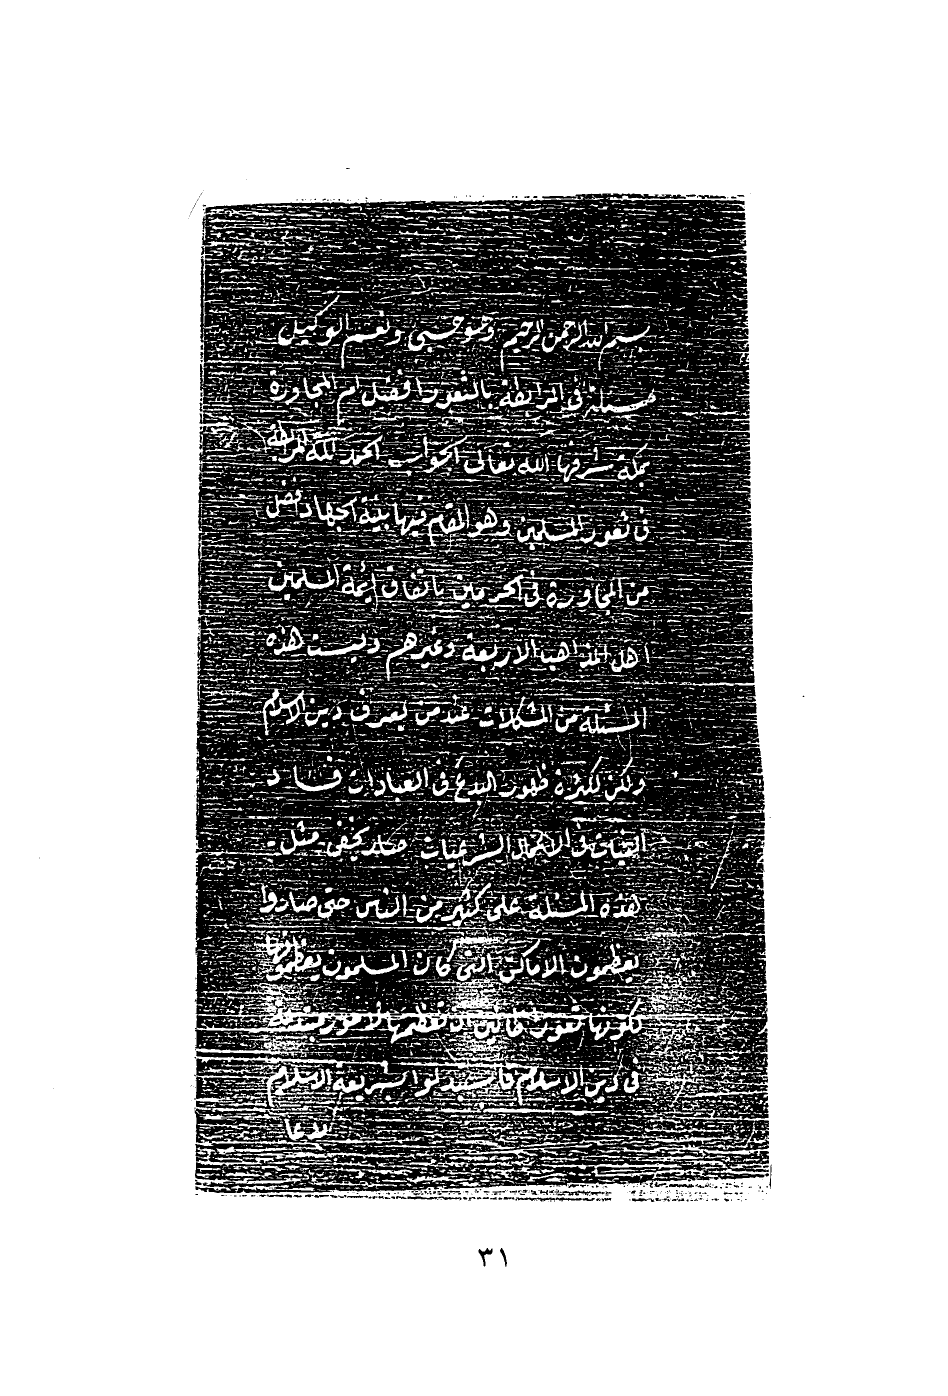 بسم الله الرحمن الرحيم وهو حسبي ونعم الوكيل
مسئلة في المرابطة بالثغور افضل ام المجاورة
بمكة شرفها الله تعالى الجواب الحمد لله المرابطة
في ثغور المسلمين وهو المقام فيها بنية الجهاد افضل
من المجاورة في الحرمين باتفاق ائمة المسلمين
اهل المذاهب الاربعة وغيرهم وليست هذه
المسئلة من المشكلات عند من يعرف دين الاسلام
ولكن لكثرة ظهور البدع في العبادات وفساد
النيات في الاعمال الشرعيات صار يخفى مثل
هذه المسئلة على كثير من الناس حتى صاروا
يعظمون الاماكن التي كان المسلمون يعظمونها
لكونها ثغورا ظانين ان تعظيمها لامور مبتدعة
في دين الاسلام فاستبدلوا بشريعة الاسلام
٣١